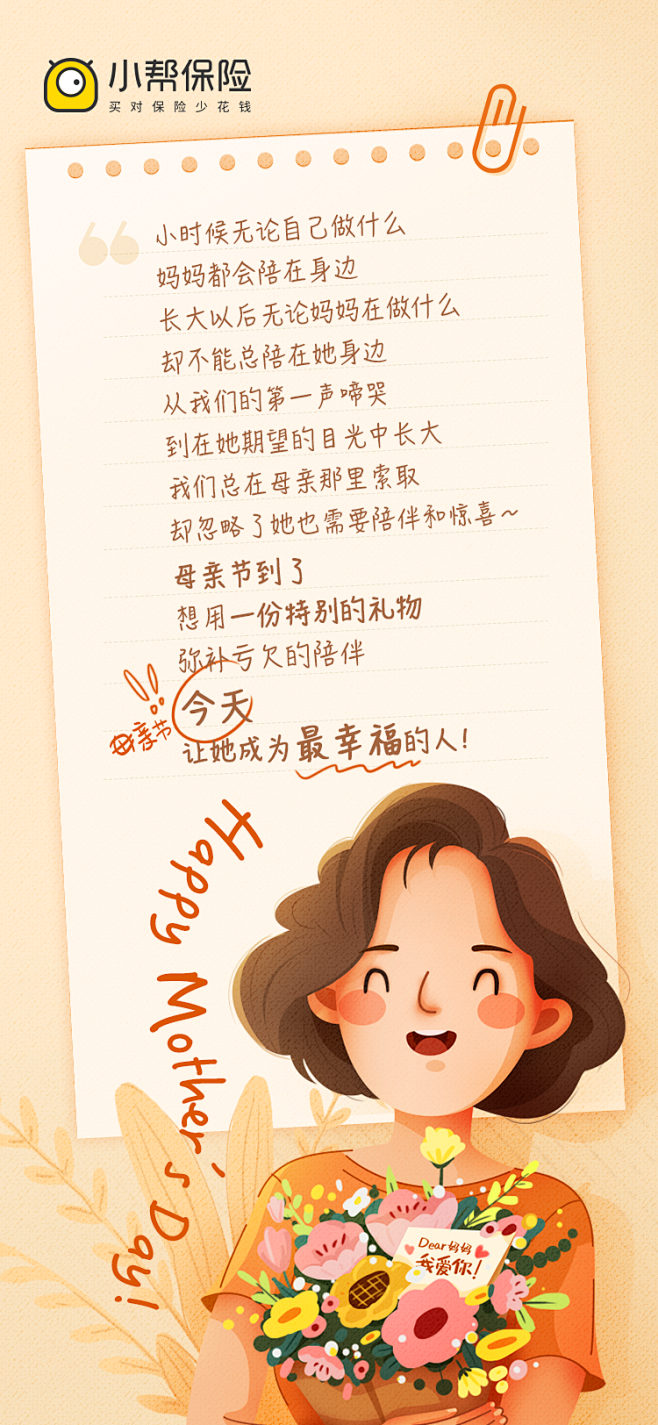 小帮保险
买对保险少花钱
小时候无论自己做什么
妈妈都会陪在身边
长大以后无论妈妈在做什么
却不能总陪在她身边
从我们的第一声啼哭
到在她期望的目光中长大
我们总在母亲那里索取
却忽略了她也需要陪伴和惊喜~
母亲节到了
想用一份特别的礼物
弥补亏欠的陪伴
今天
母亲节
让她成为最幸福的人!
Happy Mother's Day!
Dear妈妈
我爱你!